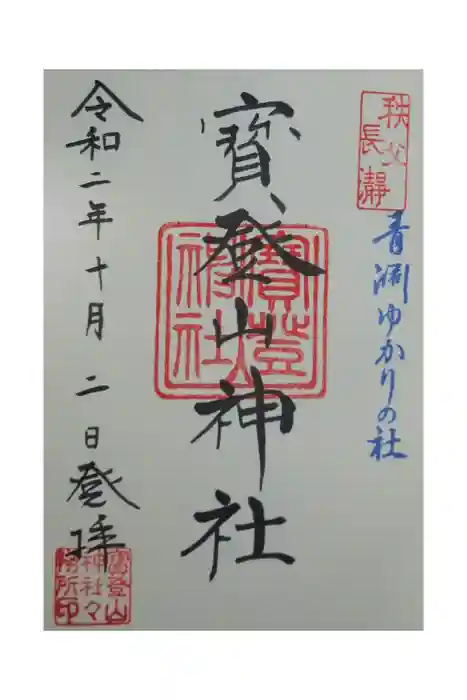 秩父
長瀞
青淵ゆかりの社
寳登山神社
寳登
山神
社
令和二年十月二日登拝
寳登山
神社々
務所印